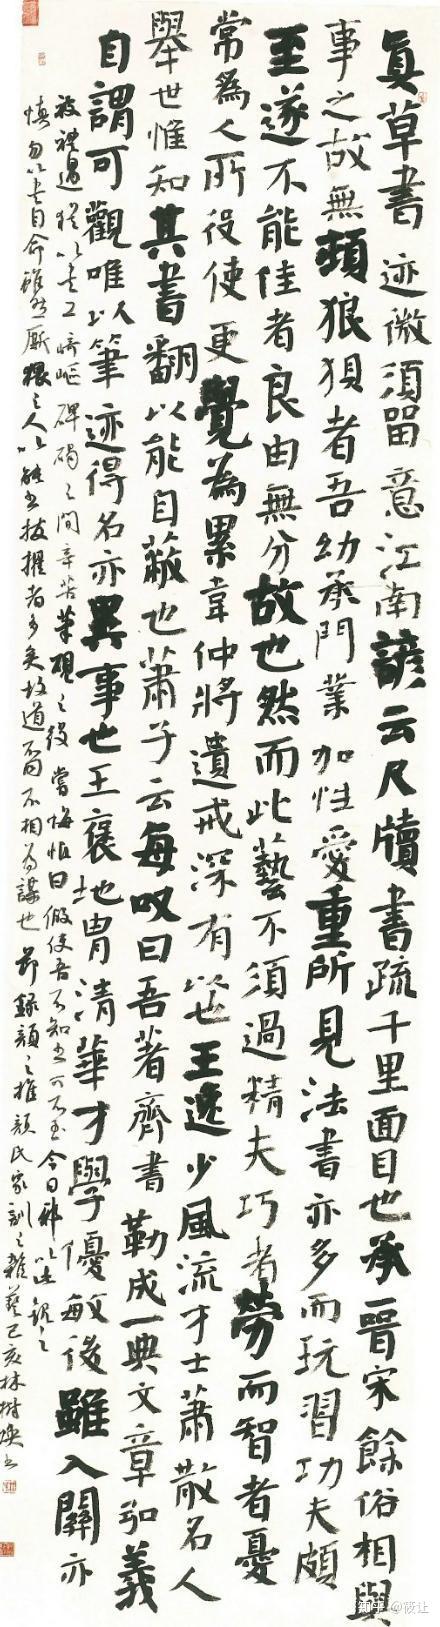 真草書迹微須留意江南諺云尺牘書疏千里面目也承晉宋餘俗相與
事之故無頓狼狽者吾幼承門業加性愛重所見法書亦多而玩習功夫頗
至遂不能佳者良由無分故也然而此藝不須過精夫巧者勞而智者憂
常為人所役使更覺為累韋仲將遺戒深有以也王逸少風流才士蕭散名人
舉世惟知其書翻以能自蔽也蕭子云每叹曰吾著齊書勒成一典文章弘義
自謂可觀唯以筆迹得名亦異事也王褒地胄清華才學優敏後雖入關亦
被禮遇猶以書工崎嶇碑碣之間辛苦筆硯之役嘗悔恨曰假使吾不知書可不至今日邪以此觀之
慎勿以書自命雖然厮猥之人以能書拔擢者多矣故道不同不相為謀也 節錄顏之推顏氏家訓之雜藝己亥林樹煥書
知乎 @薇让